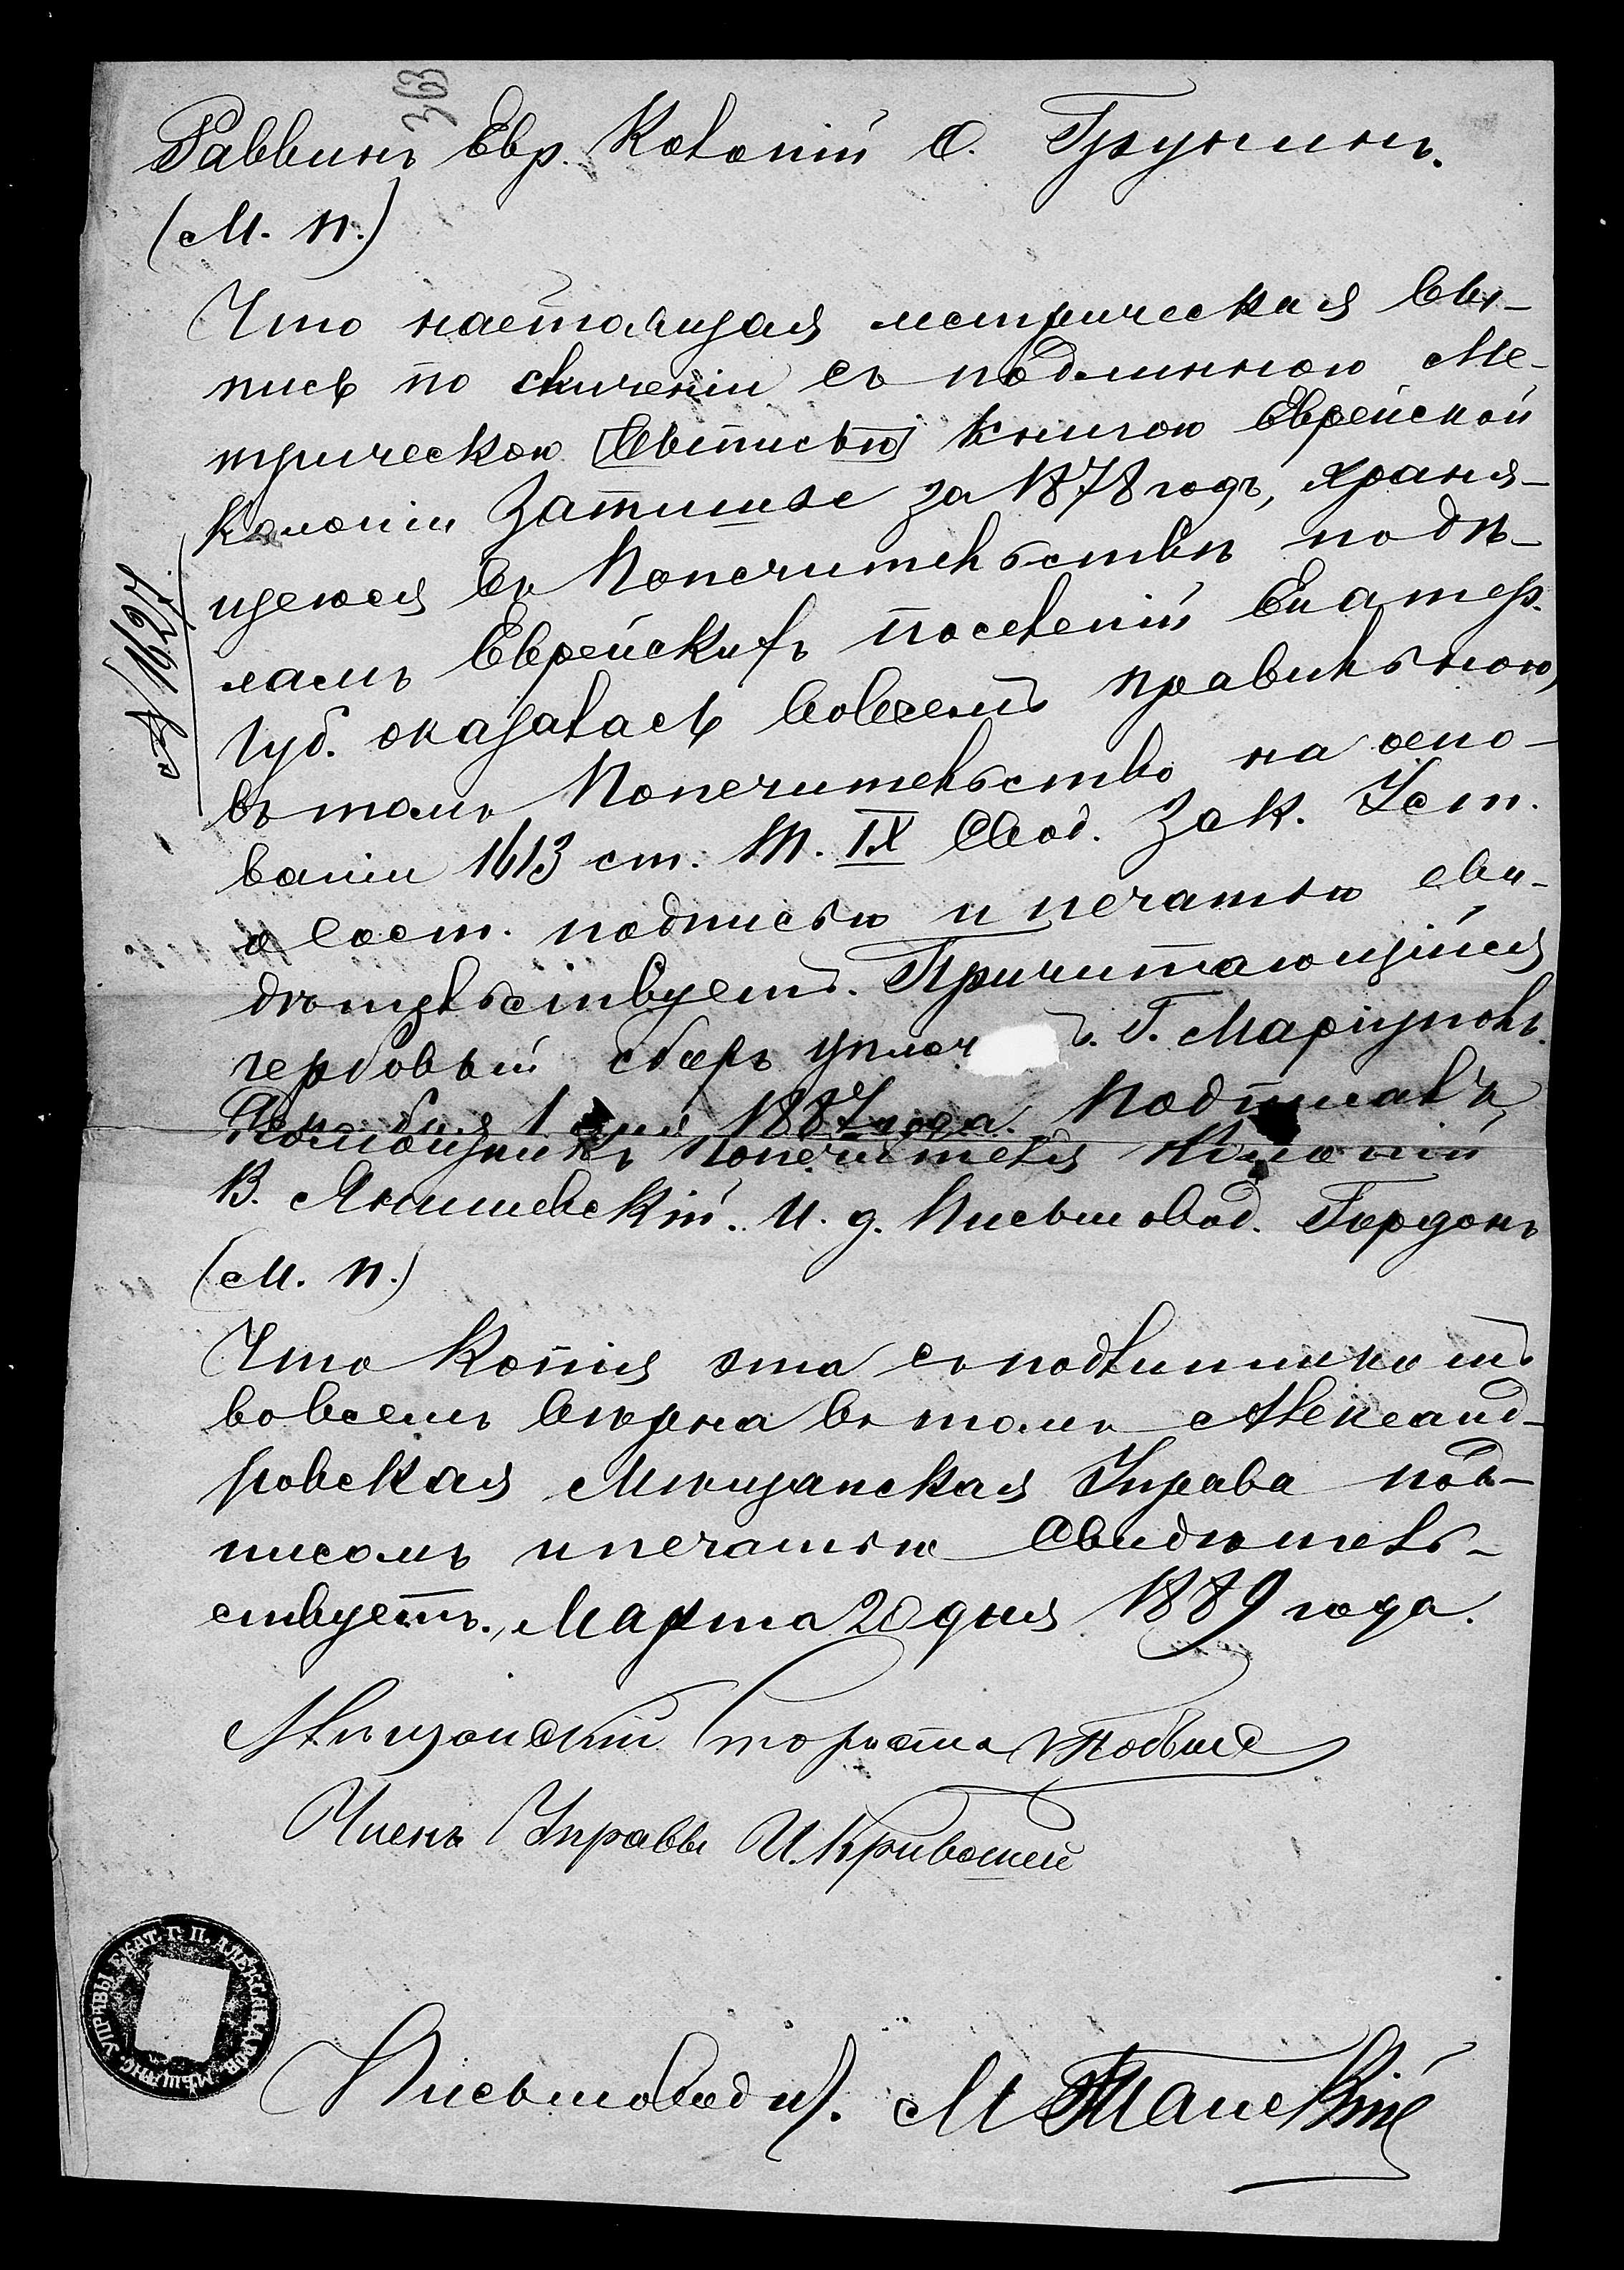 368
Раввинъ Евр. Колоній О. Грунинъ.
(М. П.)
Что настоящая метрическая вы-
пись по сличеніи съ подлинною Ме-
трическою [выписью] книгою Еврейской
колоніи Затишье за 1878 годъ, храня-
щеюся въ Попечительствѣ подѣ-
ламъ Еврейскихъ поселеній Екатер.
губ. оказалась вовсемъ правильною,
въ томъ Попечительство на осно-
ваніи 1613 ст. Т. IX Свод. Зак. Уст.
о Сост. подписью и печатью сви-
дѣтельствуетъ. Причитающійся
гербовый сборъ уплоч ъ. Г. Маріуполь.
1 дня 1887 года. Подписалъ
Помощникъ Попечителя Колоній
В. Янишевскій. И. д. Письмовод. Гордонъ
(М. П.)
Что копія эта съ подлинникомъ
вовсемъ вѣрна въ томъ Александ-
ровская Мѣщанская Управа под-
писомъ и печатью свидѣтель-
ствуетъ., Марта 20 дня 1889 года.
Мѣщанскій Староста
Членъ Управы И. Кривошей
УПРАВЫ ЕКАТ. Г. П. АЛЕКСАНДРОВ. МѢЩАНС.
Письмоводи). М
№ 1627